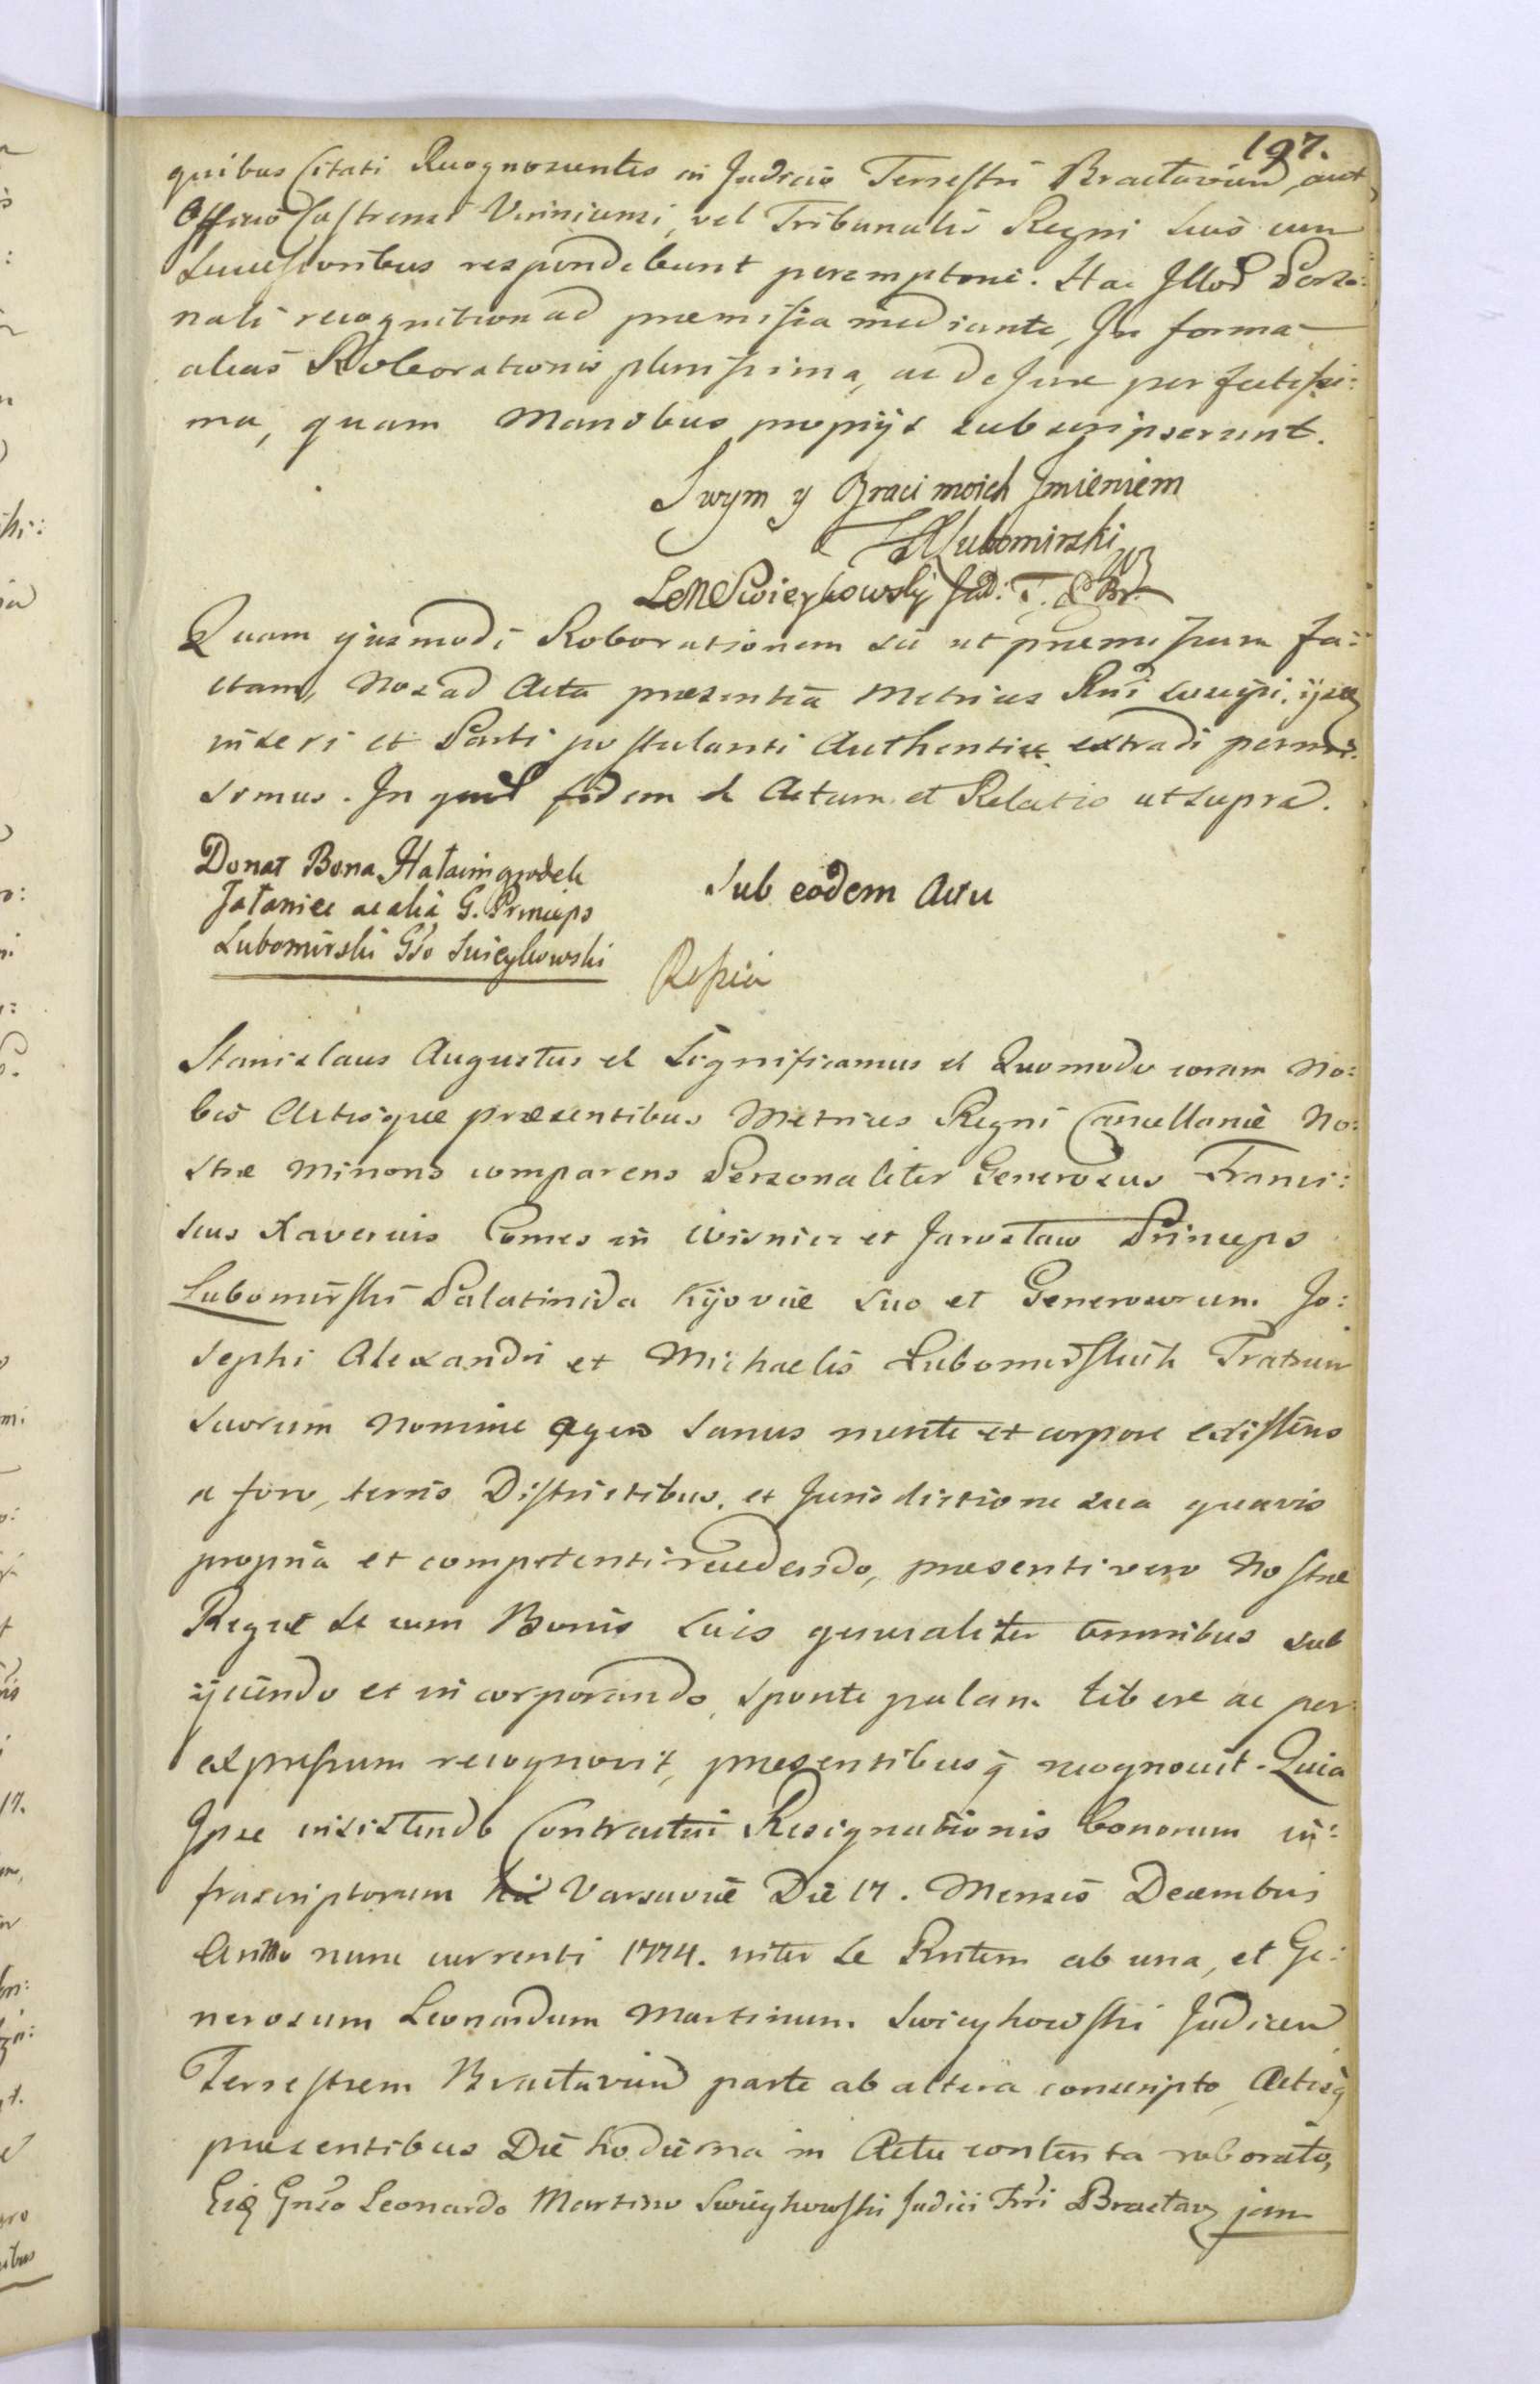 197.
quibus Citati Recognoscentes in Judicio Terrestri Braclavien̄ aut
Officio Castrensi Vinnicensi, vel Tribunalis Regni suis cum
Successoribus respondebunt peremptorie. Hac Illor̄ Perso:
nali recognitione ad præmissa mediante, In forma
alias Roborationis plenissima, ac de Jure perfectissi:
ma, quam Manibus propijs subscripserunt.
Swym y Braci moich Jmieniem
Lubomirski
Swieykowsky Jud: T. Br.
Quam ejusmodi Roborationem sic ut præmissum fa:
ctam, Nos ad Acta præsentia Metrices Rni suscepi, ijsq
inseri et Parti postulanti Authentice extradi permi:
simus. In quor̄ fidem et Actum et Relatio ut supra.
Donat Bona
ac alia G. Princeps
Lubomirski Gso Swieykowski
Sub eodem Actu
Rossia
Stanislaus Augustus et Significamus et Quomodo coram No:
bis Actisque præsentibus Metrices Regni Cancellariæ No:
stræ Minoris comparens Personaliter Generosus Franci:
scus Xaverius Comes in Wisnicz et Jarosław Princeps
Lubomirski Palatinida Kijoviæ suo et Generosorum Jo:
sephi Alexandri et Michaelis Lubomirskich Fratrum
suorum Nomine agens sanus mente et corpore existens
a foro, terris Districtibus, et Jurisdictione sua quavis
propria et competenti recedendo, præsenti vero Nostræ
Regiæ se cum Bonis suis generaliter omnibus sub
ijciendo et incorporando, sponte palam libere ac per
expressum recognovit, præsentibusq̄ recognovit. Quia
Ipse insistendo Contractui Resignationis bonorum in:
frascriptorum hic Varsaviæ Die 17. Mensis Decembris
Anno nunc currenti 1774. inter se Rntem ab una, et Ge:
nerosum Leonardum Martinum Swieykowski Judicem
Terrestrem Braclavien̄ parte ab altera conscripto, Actisq̄
præsentibus Die hodierna in Actu contenta roborato,
Eidq Gnso Leonardo Martino Swieykowski Judici Trri Braclav jam